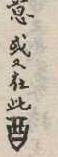 意或又在此酉